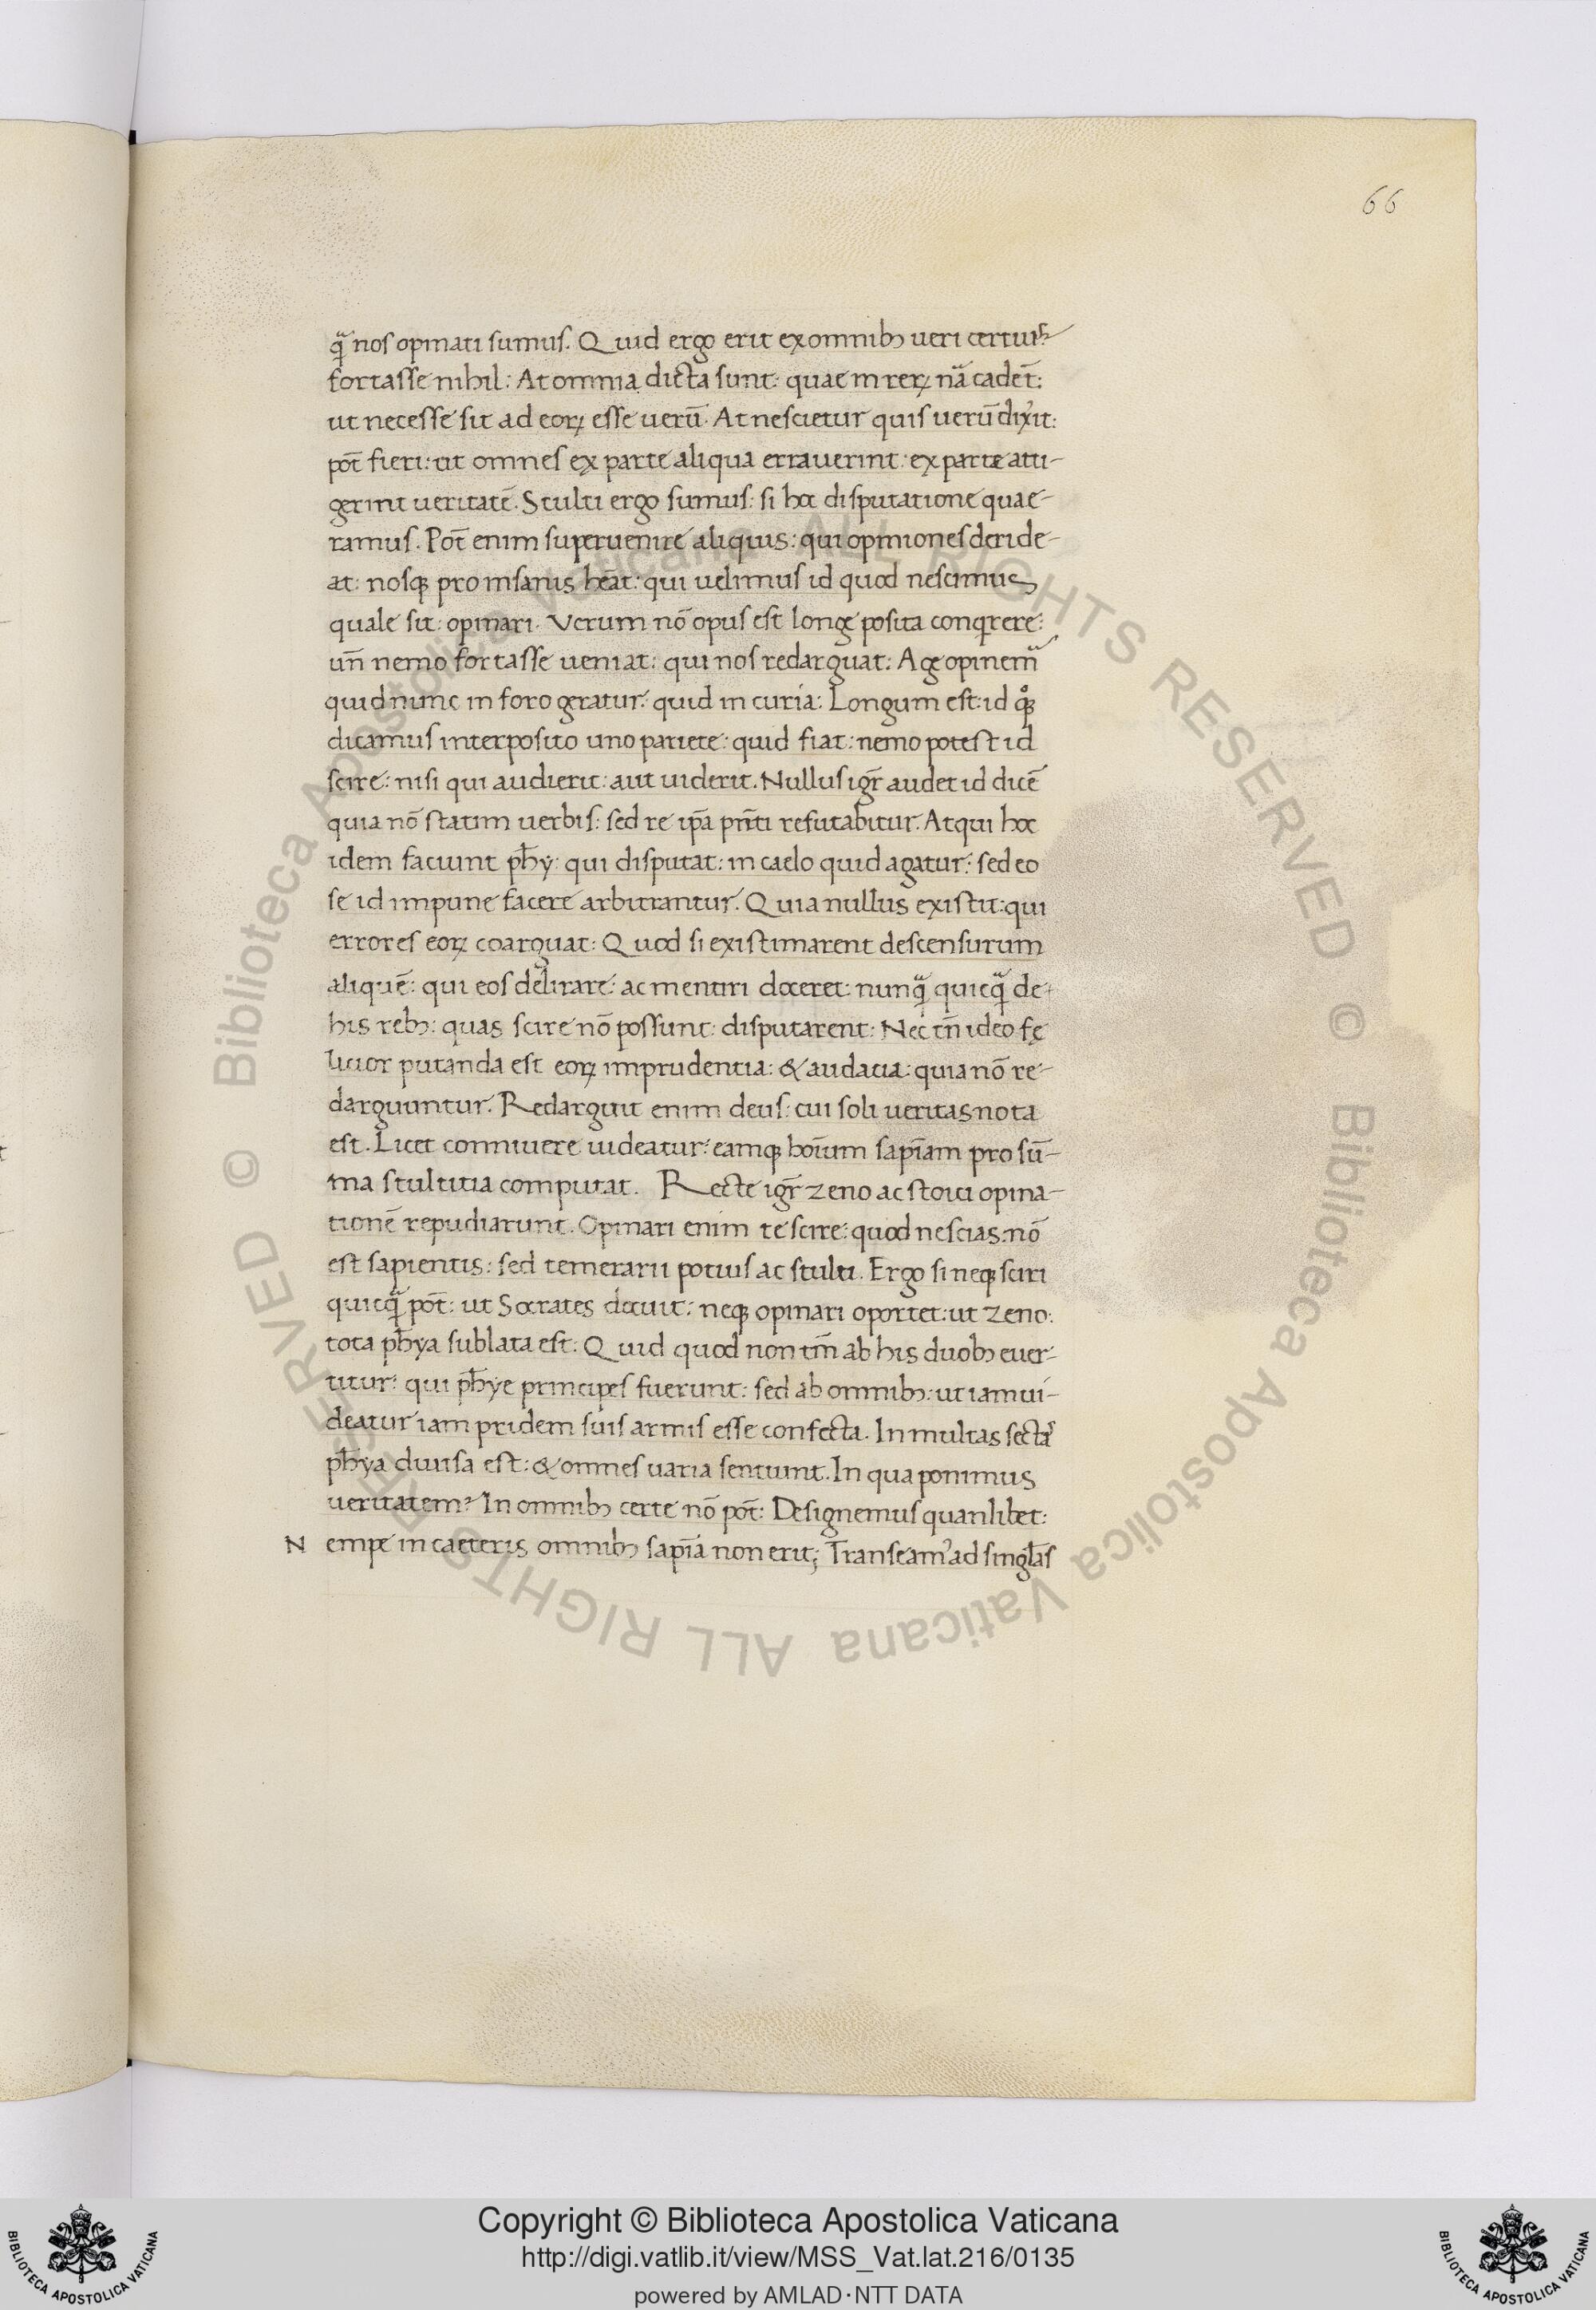 66
qͣ nos opinati sumus. Quid ergo erit ex omnibꝫ ueri certius?
fortasse nihil: At omnia dicta sunt: quae in reꝝ nã cadẽt:
ut necesse sit ad eoꝝ esse uerũ. At nescietur quis uerũ dix̓it:
põt fieri: ut omnes ex parte aliqua errauerint: ex parte atti-
gerint ueritatẽ. Stulti ergo sumus: si hoc disputatione quae-
ramus. Põt enim superuenire aliquis: qui opiniones deride-
at: nosqꝫ pro insanis hẽat: qui uelimus id quod nescimus
quale sit: opinari. Verum nõ opus est longe posita conqrere:
uñ nemo fortasse ueniat: qui nos redarguat: Age opinemͣ
quid nunc in foro geratur: quid in curia: Longum est: id qͦqꝫ
dicamus interposito uno pariete: quid fiat: nemo potest id
scire: nisi qui audierit: aut uiderit. Nullus igr̃ audet id dicẽ
quia nõ statim uerbis: sed re ip̃a pñti refutabitur. Atqui hoc
idem faciunt ph̃y: qui disputãt: in caelo quid agatur: sed eo
se id impune facere arbitrantur. Quia nullus existit: qui
errores eoꝝ coarguat: Quod si existimarent descensurum
aliquẽ: qui eos delirare: ac mentiri doceret: nunqͣ quicqͣ de-
his rebꝫ: quas scire nõ possunt: disputarent: Nec tñ ideo fę
licior putanda est eoꝝ imprudentia: & audacia: quia nõ re-
darguuntur. Redarguit enim deus: cui soli ueritas nota
est. Licet conniuere uideatur: eamqꝫ hoĩum sapĩam pro sũ-
ma stultitia computat. Recte igr̃ Zeno ac stoici opina-
tionẽ repudiarunt. Opinari enim te scire: quod nescias: nõ
est sapientis: sed temerarii potius ac stulti. Ergo si neqꝫ sciri
quicqͣ põt: ut Socrates docuit: neqꝫ opinari oportet: ut Zeno:
tota ph̃ya sublata est: Quid quod non tm̃ ab his duobꝫ euer-
titur: qui ph̃ye principes fuerunt: sed ab omnibꝫ: ut iam ui-
deatur iam pridem suis armis esse confecta. In multas sectaˢ
ph̃ya diuisa est: & omnes uaria sentiunt. In qua ponimus
ueritatem? In omnibꝫ certe nõ põt: Designemus quanlibet:
N empe in caeteris omnibꝫ sapĩa non erit; Transeam᾽ ad singl̃as
© Biblioteca Apostolica Vaticana ALL RIGHTS RESERVED © Biblioteca Apostolica Vaticana ALL RIGHTS RESERVED
Copyright © Biblioteca Apostolica Vaticana
http://digi.vatlib.it/view/MSS_Vat.lat.216/0135
powered by AMLAD·NTT DATA
BIBLIOTECA APOSTOLICA VATICANA
BIBLIOTECA APOSTOLICA VATICANA